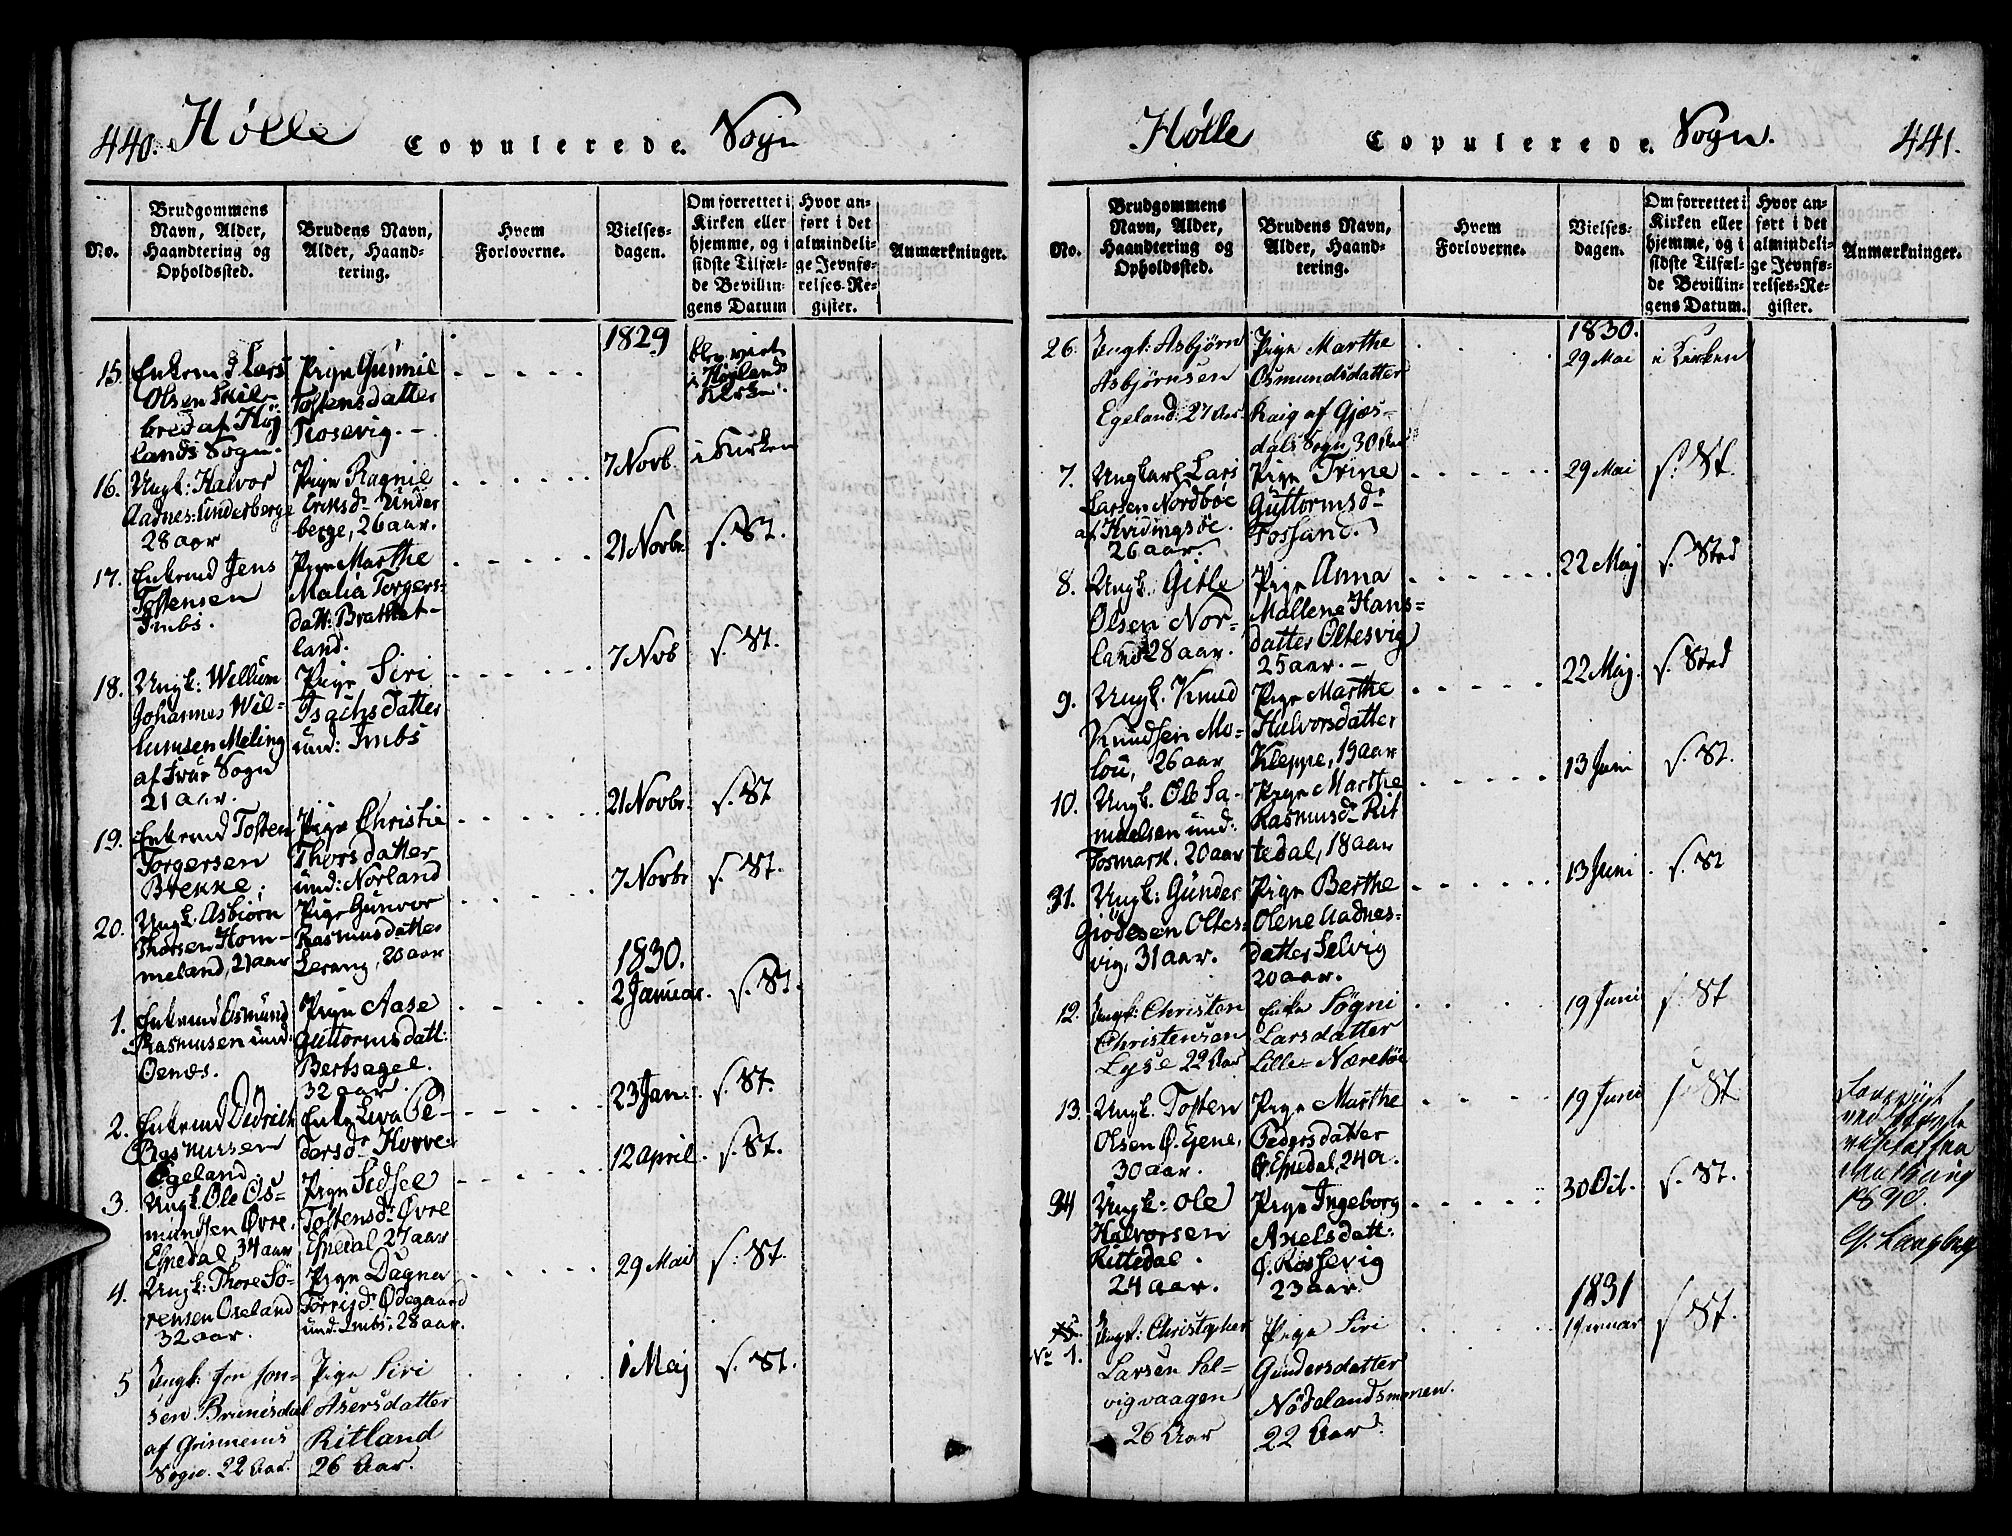 440. Hølle Copulerede. Sogn
No.
Brudgommens
Navn, Alder,
Haandtering og
Opholdssted.
Brudens Navn,
Alder, Haand-
tering.
Hvem
Forloverne.
Vielses-
dagen.
Om forrettet i
Kirken eller
hjemme, og i
sidste Tilfæl-
de Bevillin-
gens Datum
Hvor an-
ført i det
almindeli-
ge Jevnfø-
relses-Re-
gister.
Anmærkninger.
1829
15. Enkemd Lars
Olsen Skil-
bred af Høj
lands Sogn.
Pige Gunnil
Tostensdatter
Kosevig. -
blev viet
i Højland
Kirke.
16. Ungk: Halvor
Aadnes: Underberge
28 aar
Pige Ragnil
Eriksdr Under
berge, 26 aar.
7 Novb. i Kirken
17. Enkemd Jens
Tostensen
Imbs.
Pige Marthe
Malia Torgers-
datt: Brattet-
land.
21 Novbr. s. St.
18. Ungk: Wellum
Johannes Wil-
lumsen Meling
af Sogn
21 aar.
Pige Siri
Isachsdatter
und: Imbs
7 Nvb s. St.
19. Enkemd Tosten
Torgersen
Brekke.
Pige Christie
Thorsdatter
und: Norland
21 Novbr. s. St
20. Ungk. Asbiørn
Thorsen Hom-
meland, 21 aar
Pige Gunvor
Rasmusdatter
Lerang, 20 aar
7 Novbr s. St.
1830.
1. Enkemd Osmund
Rasmusen und.
Oenæs.
Pige Aase
Guttormsdatt:
Bertsagel.
32 aar.
2 Januar. s. St.
2. Enkemd Didrich
Rasmussen
Egeland
Enke Liva Pe-
dersdr Horve.
23 Jan. s. St.
3. Ungk. Ole Os-
mundsen Øvre
Espedal, 34 aar
Pige Sidsee
Tostensdr Øvre
Espedal, 27 aar
12 April. s. St.
4. Ungk: Thore Sö-
rensen Oseland
32 aar.
Pige Dagna
Torrisdr Ødegaard
und: Imbs. 28 aar.
29 Mai s. St.
5 Ungk: Jon Jon-
sen Brunisdal
af
Sogn. 22 Aar.
Pige Siri
Asersdatter
Ritland
26 Aar.
1 Maj s. St.
Hølle Copulerede. Sogn. 441.
No.
Brudgommens
Navn, Alder,
Haandtering og
Opholdssted.
Brudens Navn,
Alder, Haand-
tering.
Hvem
Forloverne.
Vielses-
dagen.
Om forrettet i
Kirken eller
hjemme, og i
sidste Tilfæl-
de Bevillin-
gens Datum.
Hvor an-
ført i det
almindeli-
ge Jevnfø-
relses-Re-
gister.
Anmærkninger.
1830.
26. Ungk: Asbjørn
Asbjørnsen
Egeland. 27 Aar.
Pige Marthe
Osmundsdatter
Raig af Gjæs-
dals Sogn, 30 Aar
29 Mai i Kirken
7. Ungkarl Lars
Larsen Nordböe
af Hvidingsöe.
26 aar.
Pige Trine
Guttormsdr
Fossand.
29 Mai s. St.
8. Ungk. Gitle
Olsen Nor-
land 28 aar.
Pige Anna
Mallene Hans-
datter Oltesvig
25 aar. -
22 Maj s. Sted
9. Ungk. Knud
Knudsen Mo-
lou, 26 aar
Pige Marthe
Halvorsdatter
Kleppe, 19 aar
22 Maj. s. Sted
10. Ungk. Ole Sa-
muelsen und:
Fosmark. 20 aar
Pige Marthe
Rasmusdr Rit
tedal, 18 aar
13 Juni s. St.
31. Ungk: Gunder
Giödesen Oltes-
vig, 31 aar.
Pige Berthe
Olene Aadnes-
datter Selvig
20 aar.
13 Juni s. St
12. Ungk: Christen
Christensen
Lyse 22 Aar
Enke Søgni
Larsdatter
Lille- Næreböe
19 Juni s. St
13. Ungk. Tosten
Olsen Ø. Ejene,
30 aar.
Pige Marthe
Pedersdatter
Ø. Espedal, 24 a.
19 Juni s. St.
34 Ungk: Ole
Halvorsen
Rittedal.
24 aar.
Pige Ingeborg
Axelsdatt:
J. Kossevig
23 aar.
30 Oct. s. St.
1890.
1831
No 1. Ungk: Christopher
Larsen Sel-
vigvaagen
26 Aar
Pige Siri
Gundersdatter
Nödelandsmonen.
22 Aar.
1 Januar s. St.